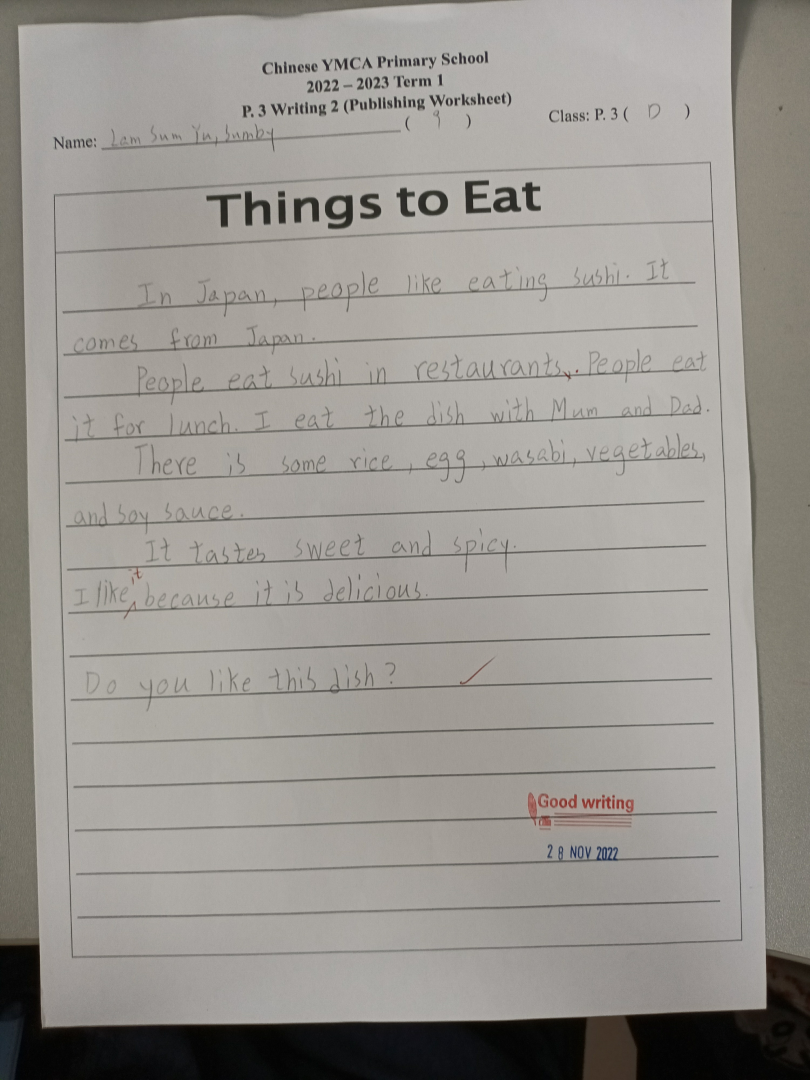 Chinese YMCA Primary School
2022 – 2023 Term 1
P. 3 Writing 2 (Publishing Worksheet)
Name: Lam Sum Yu, Sumby ( 9 ) Class: P. 3 ( D )
Things to Eat
In Japan, people like eating sushi. It
comes from Japan.
People eat sushi in restaurants. People eat
it for lunch. I eat the dish with Mum and Dad.
There is some rice, egg, wasabi, vegetables,
and soy sauce.
It tastes sweet and spicy.
I like it because it is delicious.
Do you like this dish?
Good writing
28 NOV 2022